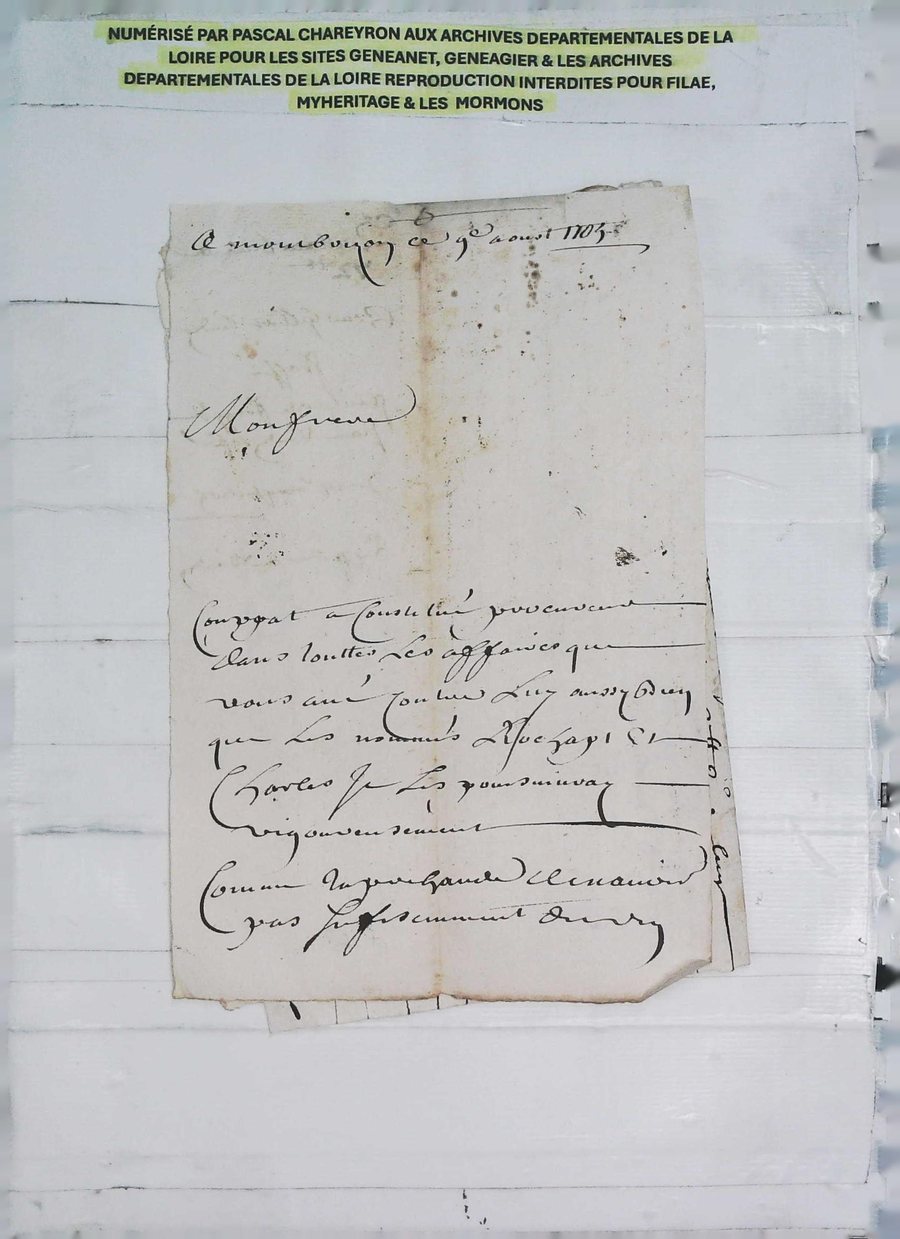 NUMÉRISÉ PAR PASCAL CHAREYRON AUX ARCHIVES DEPARTEMENTALES DE LA
LOIRE POUR LES SITES GENEANET, GENEAGIER & LES ARCHIVES
DEPARTEMENTALES DE LA LOIRE REPRODUCTION INTERDITES POUR FILAE,
MYHERITAGE & LES MORMONS
A ce 9e aoust 1703
Monfrere
a Constitué procureur
dans touttes Les affaires que
vous avé contre Luy aussy bien
que Les nommés Et
Charles Je Les poursuivray
vigoureusement
Comme
pas suffisemment